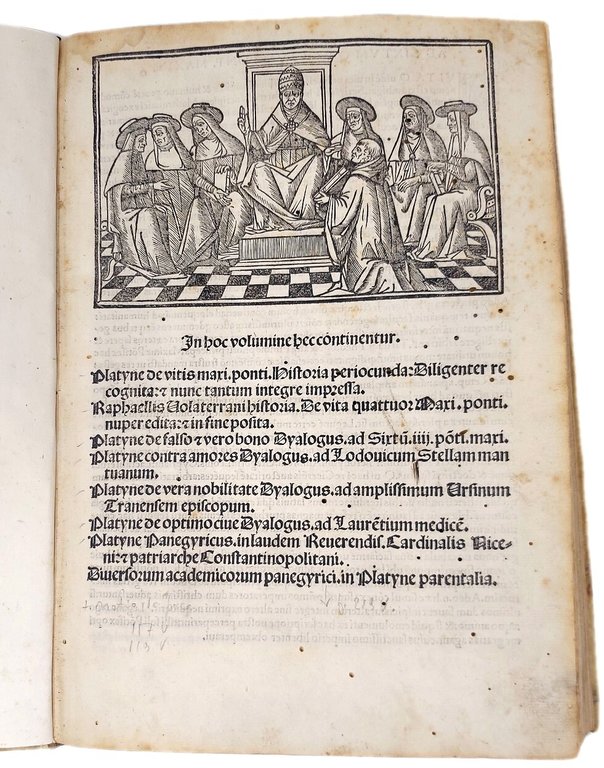 In hoc volumine hec cōtinentur.
Platyne de vitis maxi. ponti. Historia periocunda: Diligenter re
cognita: ⁊ nunc tantum integre impressa.
Raphaellis Volaterrani historia. De vita quattuor Maxi. ponti.
nuper edita: ⁊ in fine posita.
Platyne de falso ⁊ vero bono Dyalogus. ad Sixtū. iiij. pōti. maxi.
Platyne contra amores Dyalogus. ad Lodouicum Stellam man
tuanum.
Platyne de vera nobilitate Dyalogus. ad amplissimum Ursinum
Tranensem episcopum.
Platyne de optimo ciue Dyalogus. ad Laurētium medicē.
Platyne Panegyricus. in laudem Reuerendis. Cardinalis Nice-
ni: ⁊ patriarche Constantinopolitani.
Diuersorum academicorum panegyrici. in Platyne parentalia.